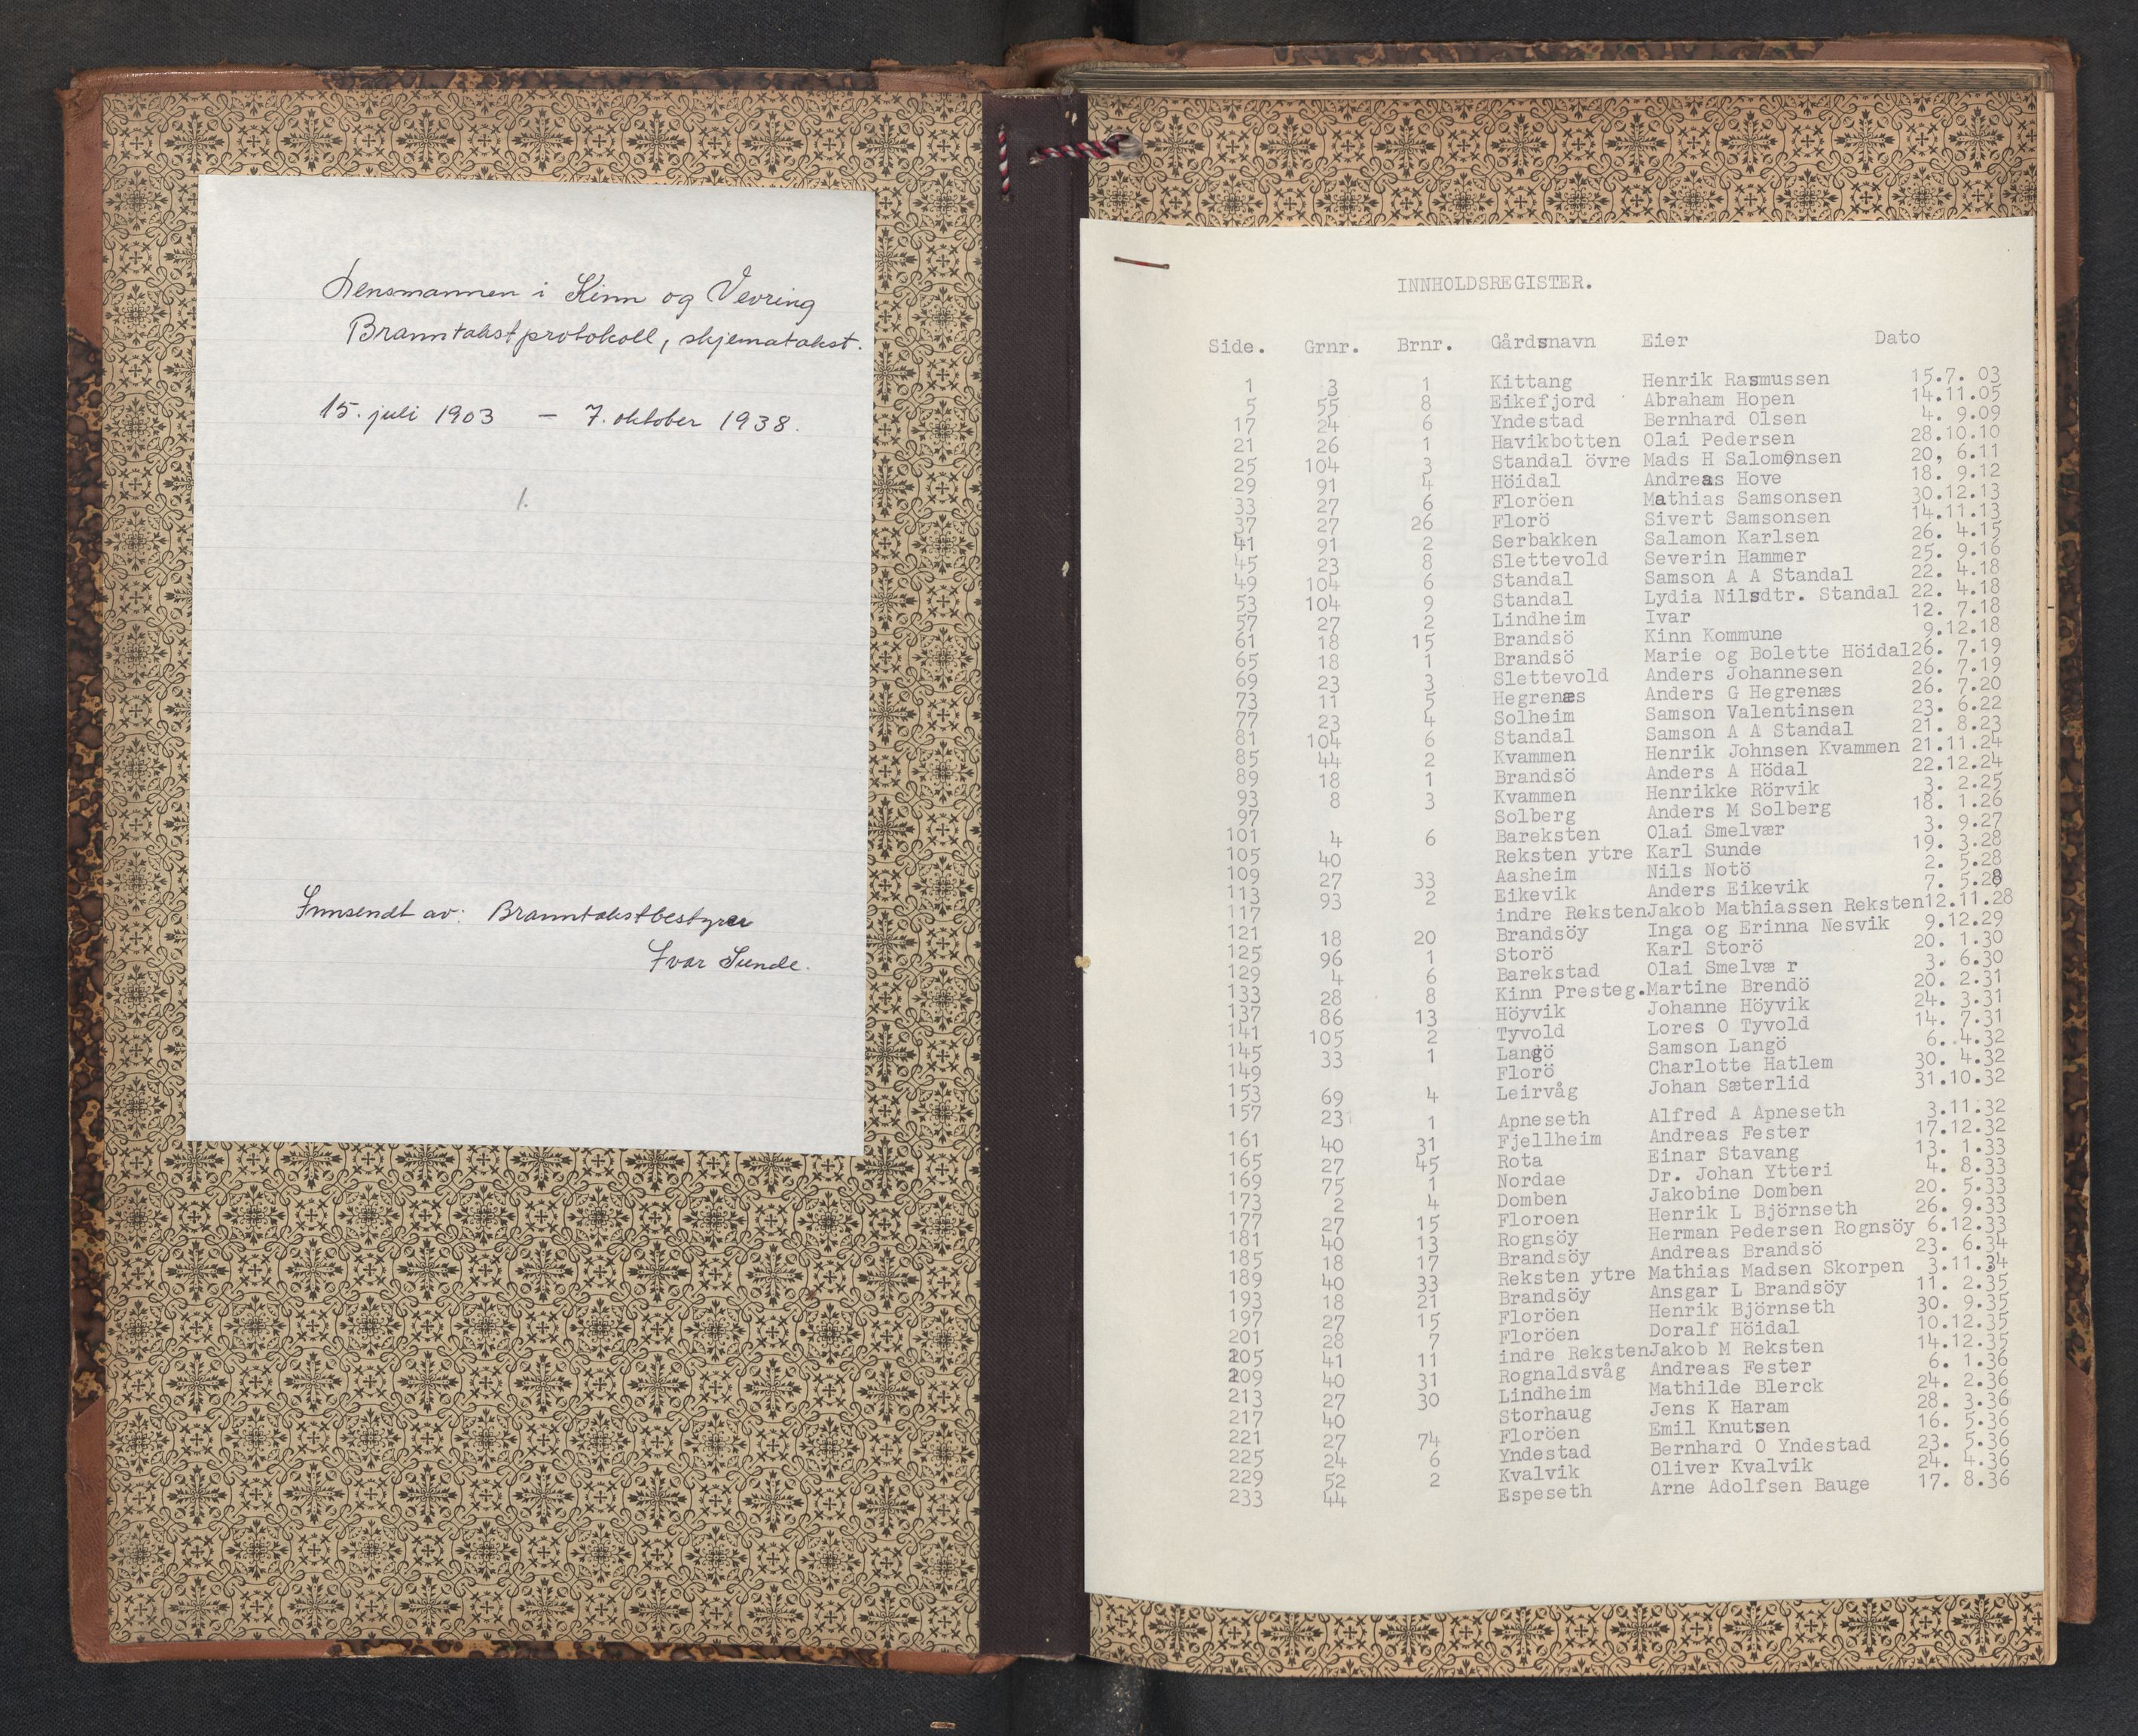 Lensmannen i Kinn og Vevring
Branntakstprotokoll, skjematakst.
15. juli 1903 — 7. oktober 1938.
1.
Innsendt av: Branntakstbestyrer
Ivar Sunde.
INNHOLDSREGISTER.
Side. Grnr. Brnr. Gårdsnavn Eier Dato
1 3 1 Kittang Henrik Rasmussen 15.7. 03
5 55 8 Eikefjord Abraham Hopen 14.11.05
17 24 6 Yndestad Bernhard Olsen 4. 9.09
21 26 1 Havikbotten Olai Pedersen 28.10.10
25 104 3 Standal övre Mads H Salomonsen 20, 6.11
29 91 4 Höidal Andreas Hove 18. 9.12
33 27 6 Floröen Mathias Samsonsen 30.12.13
37 27 26 Florö Sivert Samsonsen 14.11.13
41 91 2 Serbakken Salamon Karlsen 26. 4.15
45 23 8 Slettevold Severin Hammer 25. 9.16
49 104 6 Standal Samson A A Standal 22. 4.18
53 104 9 Standal Lydia Nilsdtr. Standal 22. 4.18
57 27 2 Lindheim Ivar 12. 7.18
61 18 15 Brandsö Kinn Kommune 9.12.18
65 18 1 Brandsö Marie og Bolette Höidal 26. 7.19
69 23 3 Slettevold Anders Johannesen 26. 7.19
73 11 5 Hegrenæs Anders G Hegrenæs 26. 7.20
77 23 4 Solheim Samson Valentinsen 23. 6.22
81 104 6 Standal Samson A A Standal 21. 8.23
85 44 2 Kvammen Henrik Johnsen Kvammen 21.11.24
89 18 1 Brandsö Anders A Hödal 22.12.24
93 8 3 Kvammen Henrikke Rörvik 3. 2.25
97 Solberg Anders M Solberg 18. 1.26
101 4 6 Bareksten Olai Smelvær 3. 9.27
105 40 Reksten ytre Karl Sunde 19. 3.28
109 27 33 Aasheim Nils Notö 2. 5.28
113 93 2 Eikevik Anders Eikevik 7. 5.28
117 indre Reksten Jakob Mathiassen Reksten 12.11.28
121 18 20 Brandsöy Inga og Erinna Nesvik 9.12.29
125 96 1 Storö Karl Storö 20. 1.30
129 4 6 Barekstad Olai Smelvæ r 3. 6.30
133 28 8 Kinn Presteg. Martine Brendö 20. 2.31
137 86 13 Höyvik Johanne Höyvik 24. 3.31
141 105 2 Tyvold Lores O Tyvold 14. 7.31
145 33 1 Langö Samson Langö 6. 4.32
149 Florö Charlotte Hatlem 30. 4.32
153 69 4 Leirvåg Johan Sæterlid 31.10.32
157 23 1 Apneseth Alfred A Apneseth 3.11.32
161 40 31 Fjellheim Andreas Fester 17.12.32
165 27 45 Rota Einar Stavang 13. 1.33
169 75 1 Nordae Dr. Johan Ytteri 4. 8.33
173 2 4 Domben Jakobine Domben 20. 5.33
177 27 15 Floroen Henrik L Björnseth 26. 9.33
181 40 13 Rognsöy Herman Pedersen Rognsöy 6.12.33
185 18 17 Brandsöy Andreas Brandsö 23. 6.34
189 40 33 Reksten ytre Mathias Madsen Skorpen 3.11.34
193 18 21 Brandsöy Ansgar L Brandsöy 11. 2.35
197 27 15 Floröen Henrik Björnseth 30. 9.35
201 28 7 Floröen Doralf Höidal 10.12.35
205 41 11 indre Reksten Jakob M Reksten 14.12.35
209 40 31 Rognaldsvåg Andreas Fester 6. 1.36
213 27 30 Lindheim Mathilde Blerck 24. 2.36
217 40 Storhaug Jens K Haram 28. 3.36
221 27 74 Floröen Emil Knutsen 16. 5.36
225 24 6 Yndestad Bernhard O Yndestad 23. 5.36
229 52 2 Kvalvik Oliver Kvalvik 24. 4.36
233 44 Espeseth Arne Adolfsen Bauge 17. 8.36